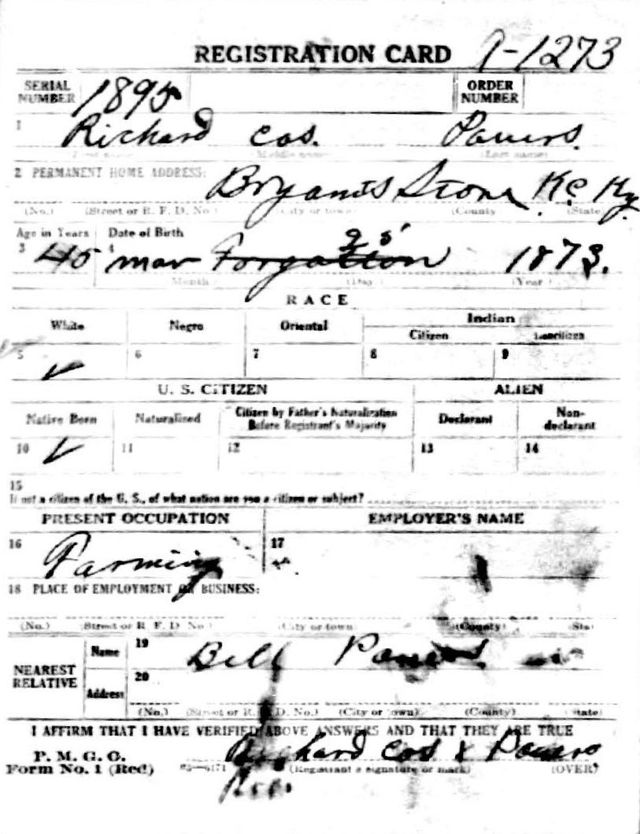 REGISTRATION CARD A-1273
SERIAL NUMBER 1895 ORDER NUMBER
1 Richard Cos. Powers.
(First name) (Middle name) (Last name)
2 PERMANENT HOME ADDRESS: Bryants Store K.C. Ky
(No.) (Street or R. F. D. No.) (City or town) (County) (State)
Age in Years Date of Birth
3 45 4 mar Forgotton 25 1873.
(Month) (Day) (Year)
RACE
White Negro Oriental Indian
Citizen Noncitizen
5 ✓ 6 7 8 9
U. S. CITIZEN ALIEN
Native Born Naturalized Citizen by Father's Naturalization Before Registrant's Majority Declarant Non-declarant
10 ✓ 11 12 13 14
15
If not a citizen of the U. S., of what nation are you a citizen or subject?
PRESENT OCCUPATION EMPLOYER'S NAME
16 Farming 17
18 PLACE OF EMPLOYMENT OR BUSINESS:
(No.) (Street or R. F. D. No.) (City or town) (County) (State)
NEAREST RELATIVE
Name 19 Bill Powers
Address 20
(No.) (Street or R. F. D. No.) (City or town) (County) (State)
I AFFIRM THAT I HAVE VERIFIED ABOVE ANSWERS AND THAT THEY ARE TRUE
P. M. G. O.
Form No. 1 (Red) Richard Cos x Powers
03—6171 (Registrant's signature or mark) (OVER)